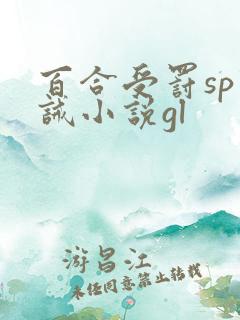 百合受罸sp
誡小说gl
游昌江
未经同意禁止转载